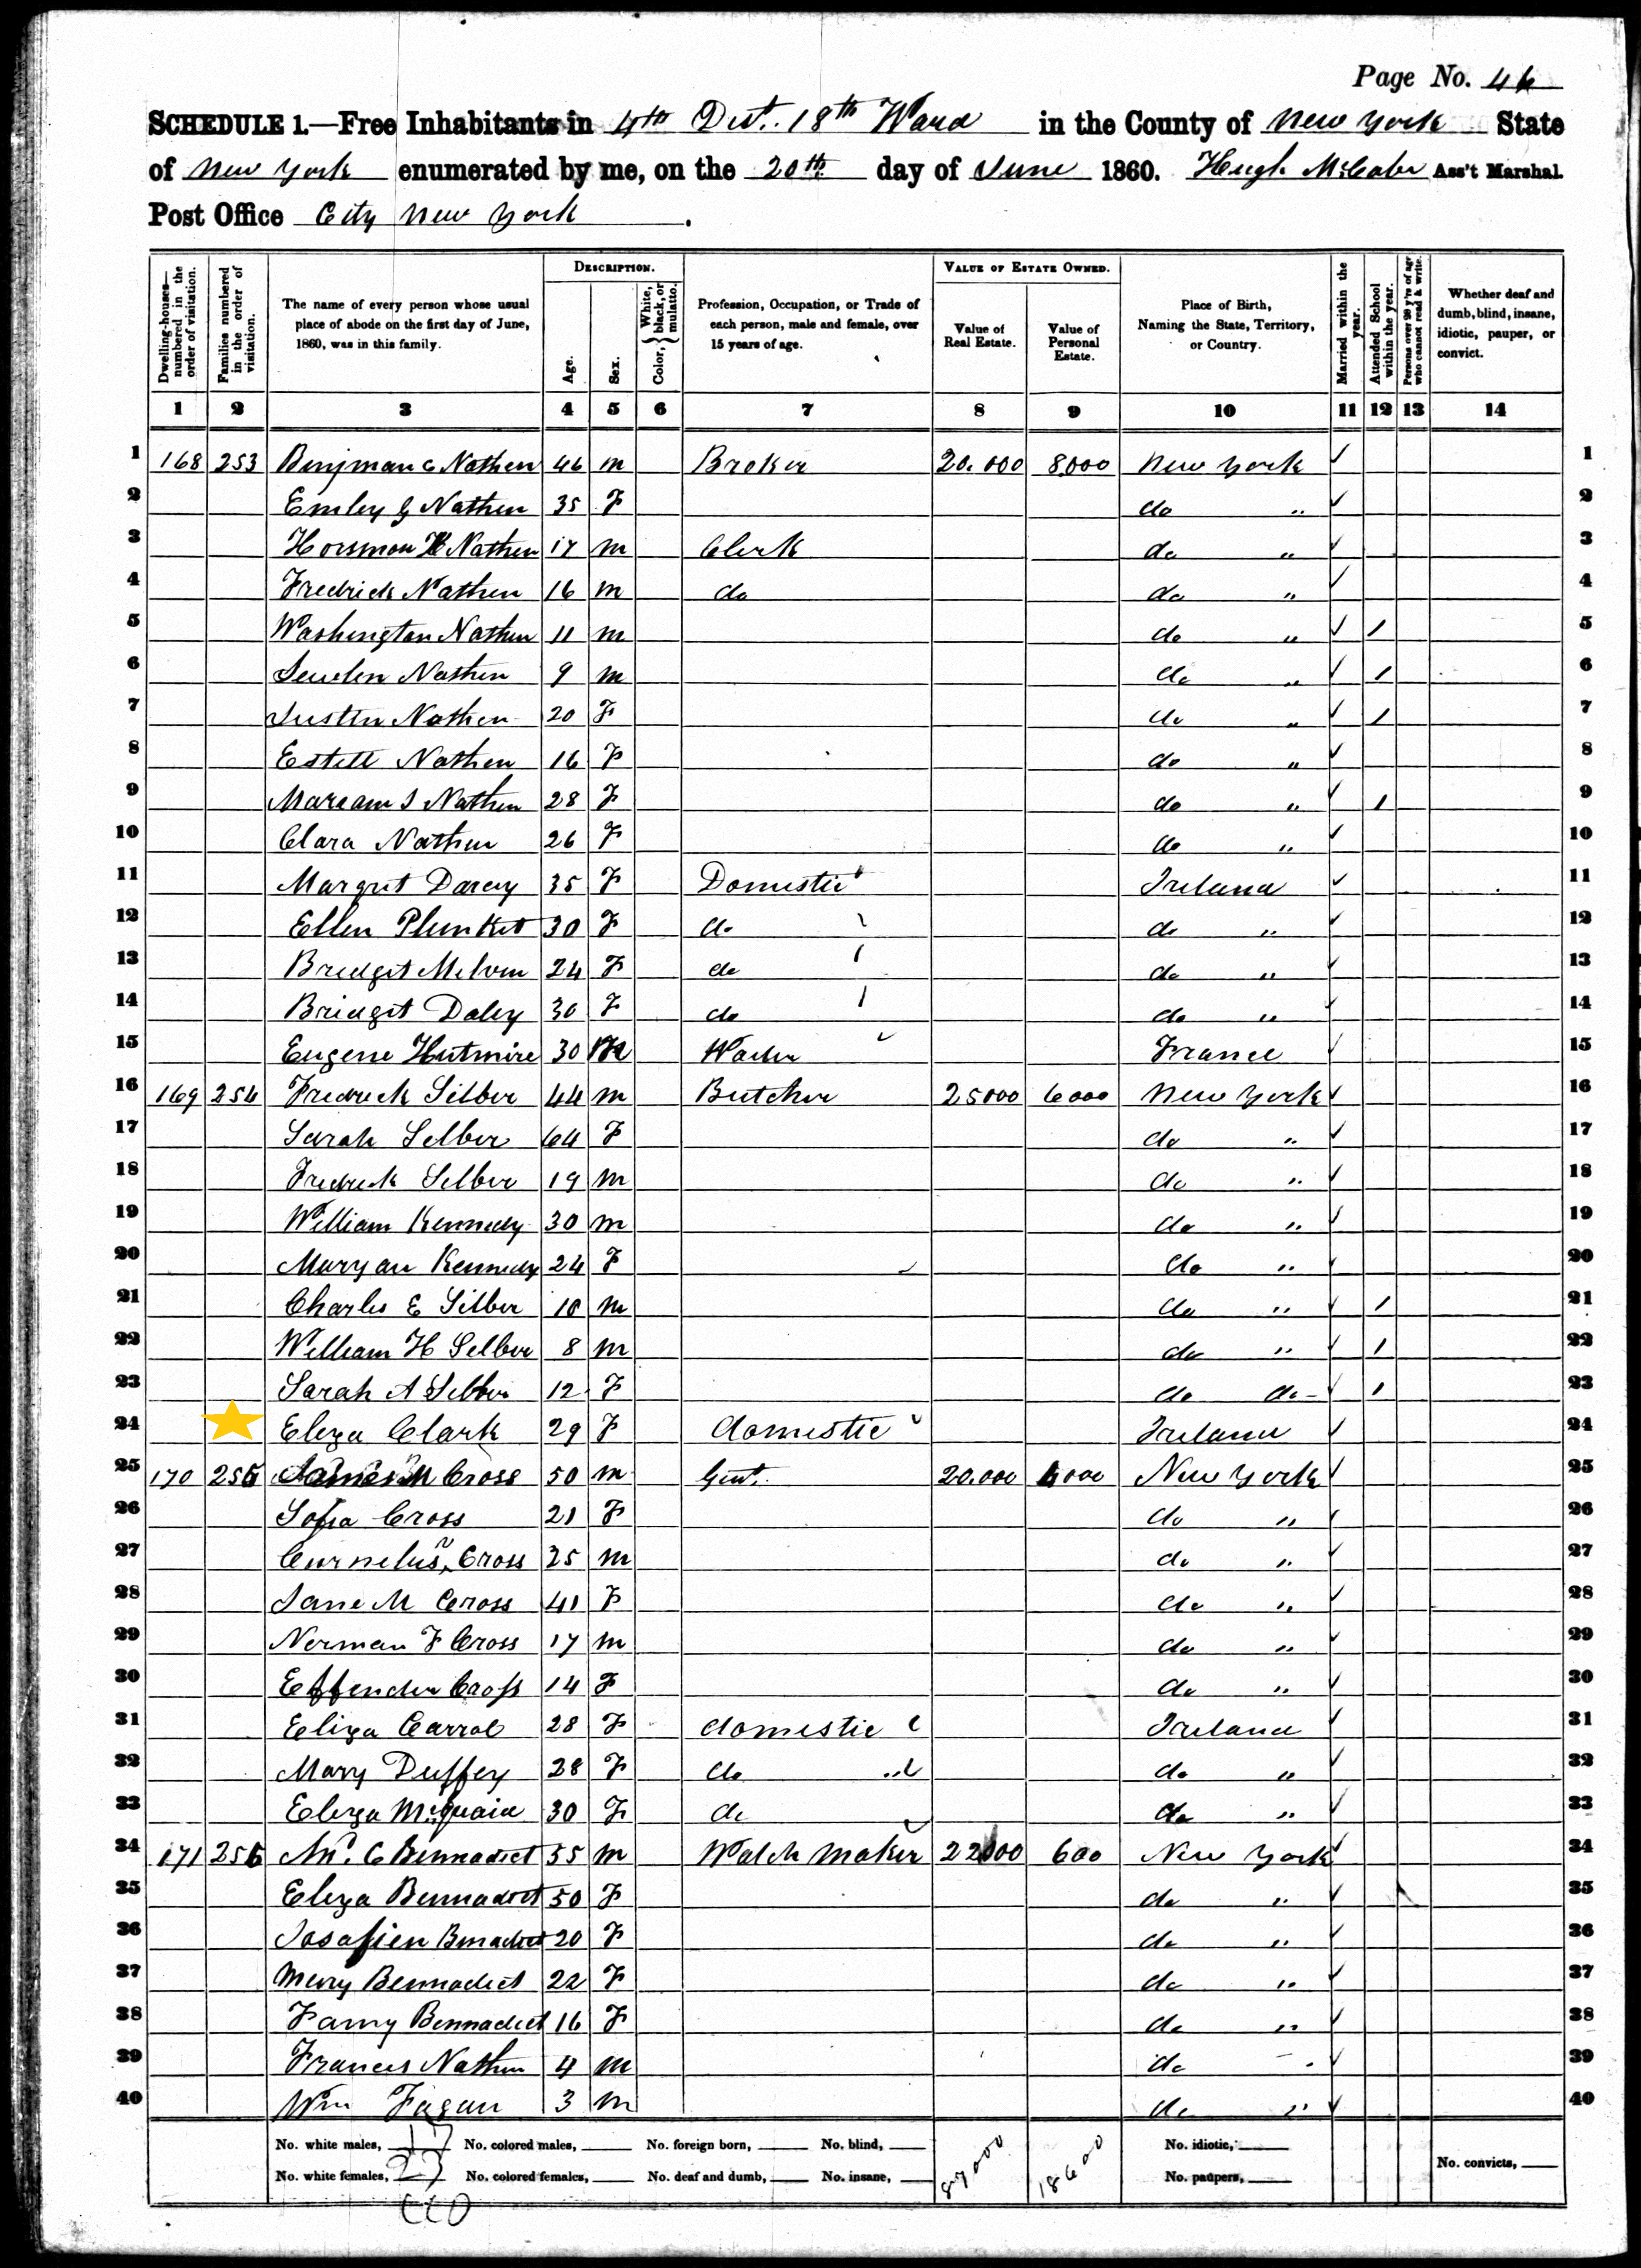 Page No. 46
SCHEDULE 1.—Free Inhabitants in 4th Dist. 18th Ward in the County of New York State
of New York enumerated by me, on the 20th day of June 1860. Hugh McCabe Ass't Marshal.
Post Office City New York.
Dwelling-houses—numbered in the order of visitation.
Families numbered in the order of visitation.
The name of every person whose usual place of abode on the first day of June, 1860, was in this family.
DESCRIPTION.
Age.
Sex.
Color, { White, black, or mulatto.
Profession, Occupation, or Trade of each person, male and female, over 15 years of age.
VALUE OF ESTATE OWNED.
Value of Real Estate.
Value of Personal Estate.
Place of Birth, Naming the State, Territory, or Country.
Married within the year.
Attended School within the year.
Persons over 20 y'rs of age who cannot read & write.
Whether deaf and dumb, blind, insane, idiotic, pauper, or convict.
1 2 3 4 5 6 7 8 9 10 11 12 13 14
1 168 253 Binjman C Nathen 46 m Broker 20.000 8,000 New York ✓ 1
2 Emley G Nathen 35 F do " ✓ 2
3 Horsmon Nathen 17 m Clerk do " ✓ 3
4 Fredrick Nathen 16 m do do " ✓ 4
5 Washington Nathen 11 m do " ✓ / 5
6 Nathen 9 m do " ✓ / 6
7 Justin Nathen 20 F do " ✓ / 7
8 Estell Nathen 16 F do " ✓ 8
9 Maream S Nathen 28 F do " ✓ / 9
10 Clara Nathen 26 F do " ✓ 10
11 Margret Darcy 35 F Domestic Ireland ✓ 11
12 Ellen Plunket 30 F do do " ✓ 12
13 Bridget Melvin 24 F do do " ✓ 13
14 Bridget Daley 30 F do do " ✓ 14
15 Eugene Hutmire 30 M France ✓ 15
16 169 254 Fredrick Silber 44 m Butcher 25000 6000 New York ✓ 16
17 Sarah Selber 64 F do " ✓ 17
18 Fredrick Selber 19 m do " ✓ 18
19 William Kennedy 30 m do " ✓ 19
20 Maryan Kennedy 24 F do " ✓ 20
21 Charles E Silber 10 m do " ✓ / 21
22 William H Selber 8 m do " ✓ / 22
23 Sarah A Selber 12 F do do ✓ / 23
24 Eliza Clark 29 F domestic Ireland ✓ 24
25 170 255 James M Cross 50 m Gent. 20.000 4000 New York ✓ 25
26 Sofia Cross 21 F do " ✓ 26
27 Curnelus Cross 25 m do " ✓ 27
28 Jane M Cross 41 F do " ✓ 28
29 Norman F Cross 17 m do " ✓ 29
30 Effender Cross 14 F do " ✓ 30
31 Eliza Carrol 28 F domestic Ireland ✓ 31
32 Mary Duffey 28 F do do " ✓ 32
33 Eliza McQuaid 30 F do do " ✓ 33
34 171 256 C Bennadict 55 m Watch Maker 22000 600 New York ✓ 34
35 Eliza Bennadict 50 F do " ✓ 35
36 Josafien Bennadict 20 F do " ✓ 36
37 Mary Bennadict 22 F do " ✓ 37
38 Fanny Bennadict 16 F do " ✓ 38
39 Frances Nathen 4 m do " ✓ 39
40 Wm Fagan 3 m do " ✓ 40
No. white males, 17 No. colored males, No. foreign born, No. blind, 87000 18600 No. idiotic,
No. white females, 23 No. colored females, No. deaf and dumb, No. insane, No. paupers, No. convicts,
40